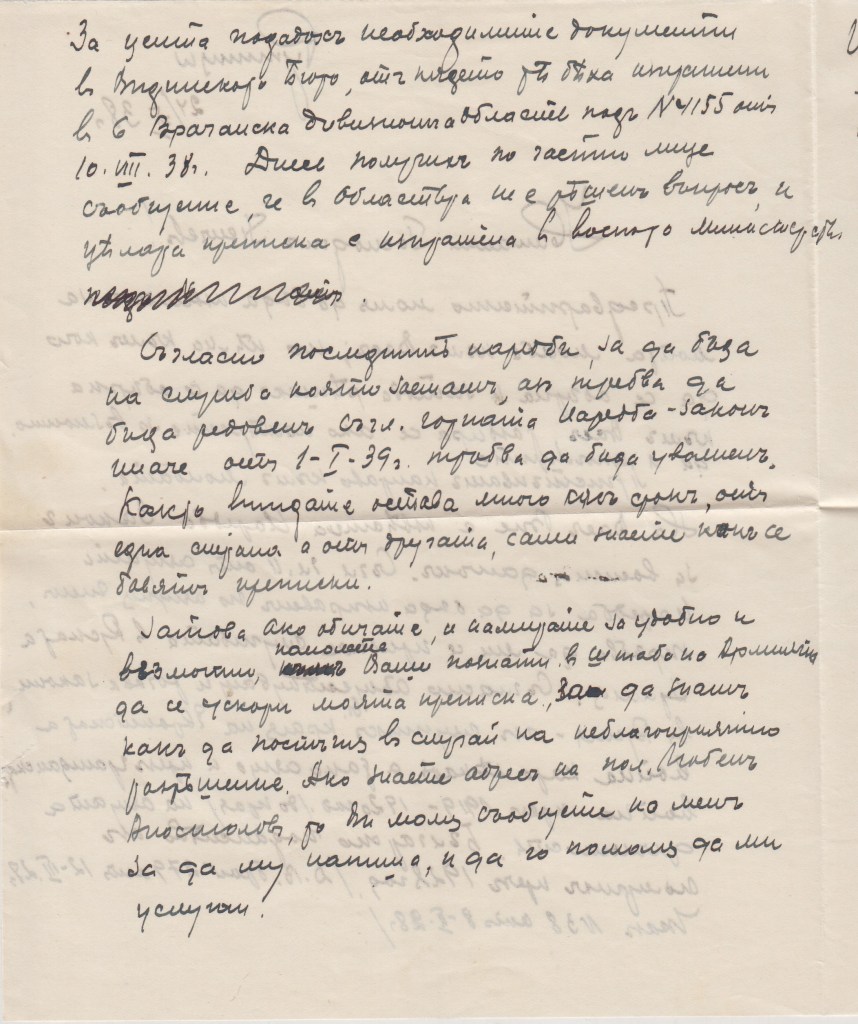 За целта подадохъ необходимите документи
въ Видинското Бюро, отъ кѫдето тѣ бѣха изпратени
в 6 Врачанска дивизионна область подъ № 4155 отъ
10. VIII. 38 г. Днес получихъ по частно лице
съобщение, че в Областьта не е рѣшенъ въпросъ, и
цѣлата преписка е изпратена в военото министерство
.
Съгласно последнитѣ наредби, за да бѫда
на служба която заемамъ, аз требва да
бѫда редовенъ съгл. горната Наредба-законъ
иначе отъ 1-I-39 г. трѣбва да бѫда уволненъ.
Както виждате остава много късъ срокъ, отъ
една страна а отъ другата, сами знаете какъ се
бавятъ преписки.
Затова ако обичате, и намирате за удобно и
възможно, помолете Ваши познати в щаба на Армията
да се ускори моята преписка, за да знамъ
какъ да постѫпя в случай на неблагоприятно
разрѣшение. Ако знаете адресъ на пол. Любенъ
Апостоловъ, то Ви моля съобщете на менъ
за да му напиша, и да го помоля да ми
услужи.